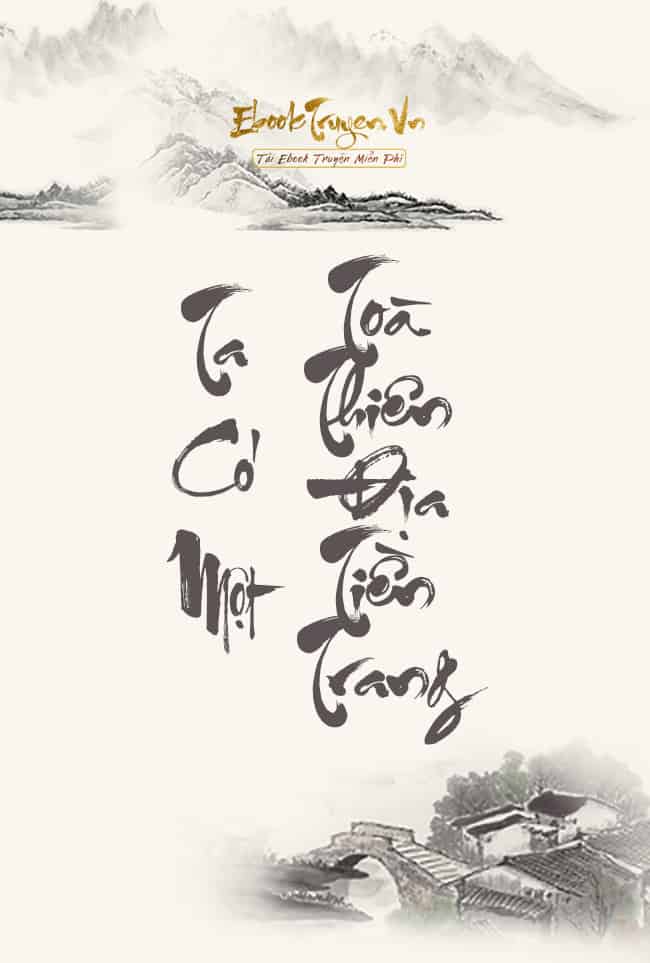 EbookTruyen.Vn
Tải Ebook Truyện Miễn Phí
Ta
Có
Một
Toà
Thiên
Địa
Tiền
Trang